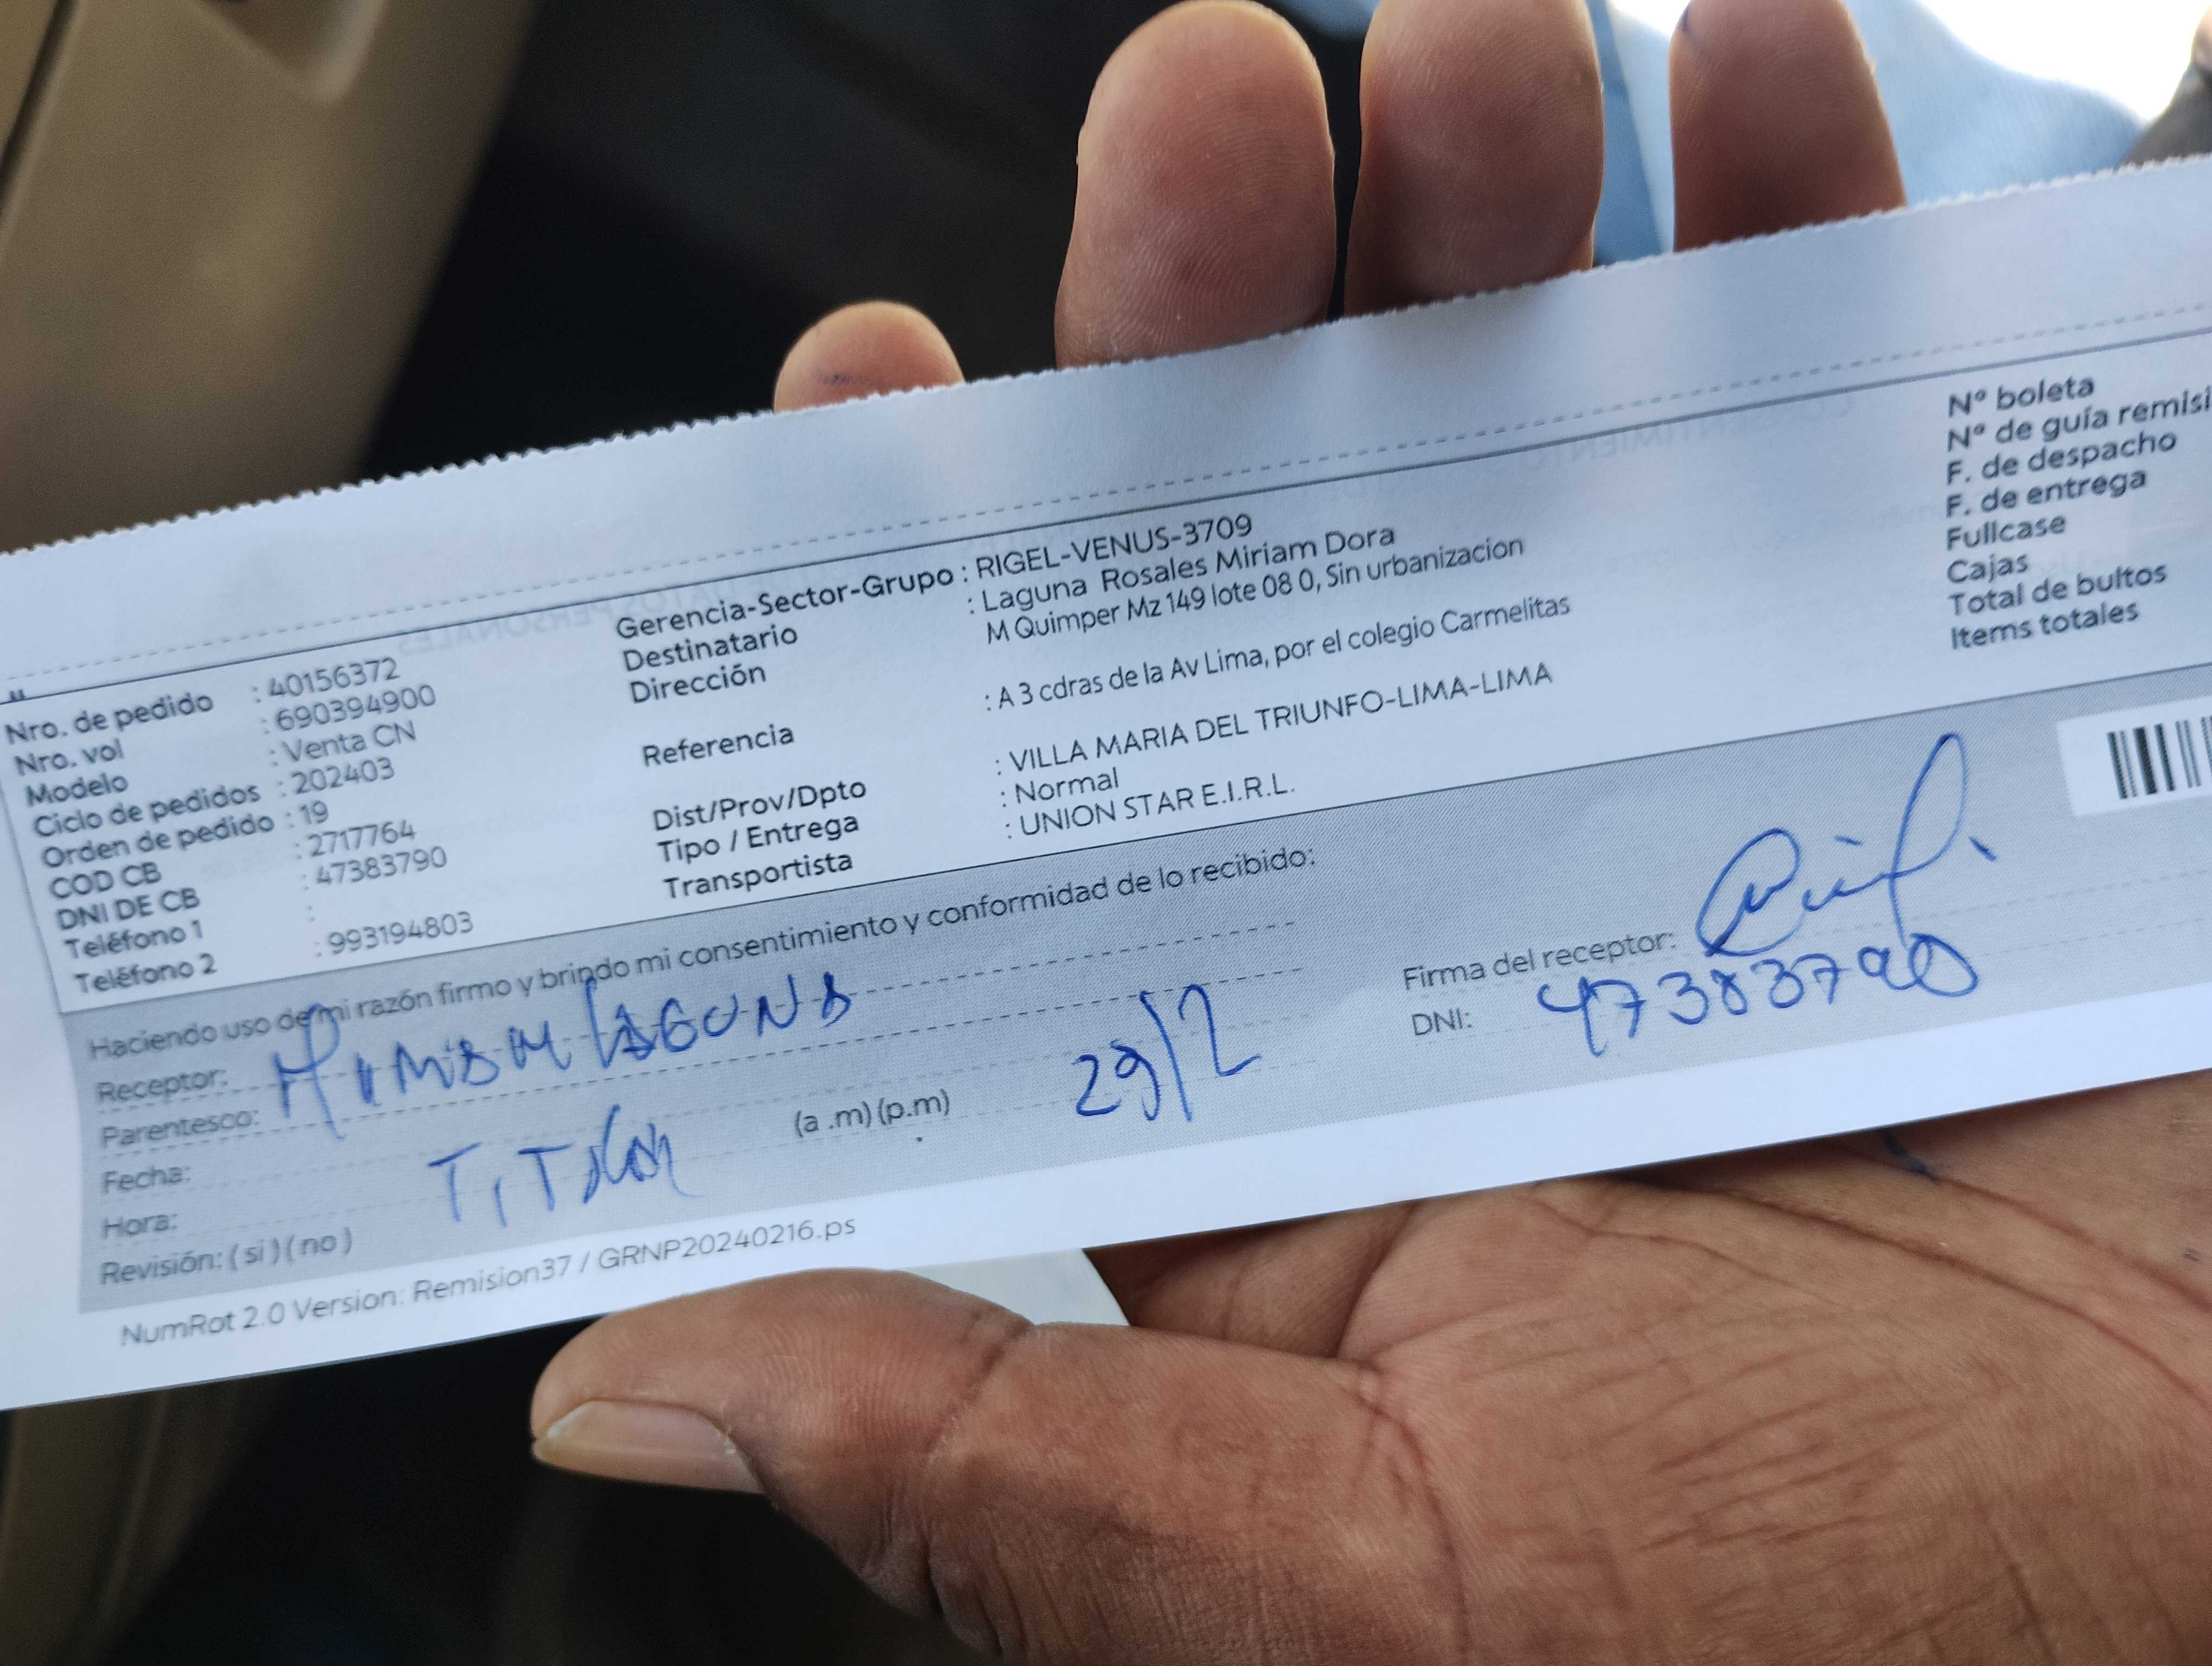 Nro. de pedido : 40156372
Nro. vol : 690394900
Modelo : Venta CN
Ciclo de pedidos : 202403
Orden de pedido : 19
COD CB : 2717764
DNI DE CB : 47383790
Teléfono 1 :
Teléfono 2 : 993194803
Gerencia-Sector-Grupo : RIGEL-VENUS-3709
Destinatario : Laguna Rosales Miriam Dora
Dirección M Quimper Mz 149 lote 08 0, Sin urbanizacion
Referencia : A 3 cdras de la Av Lima, por el colegio Carmelitas
Dist/Prov/Dpto : VILLA MARIA DEL TRIUNFO-LIMA-LIMA
Tipo / Entrega : Normal
Transportista : UNION STAR E.I.R.L.
N° boleta
N° de guía remisi
F. de despacho
F. de entrega
Fullcase
Cajas
Total de bultos
Items totales
Haciendo uso de mi razón firmo y brindo mi consentimiento y conformidad de lo recibido:
Receptor: LAGUNA
Parentesco:
Fecha: TITULAR 29/2
Hora: (a .m) (p.m)
Revisión: ( si ) ( no )
Firma del receptor:
DNI: 47383790
NumRot 2.0 Version: Remision37 / GRNP20240216.ps